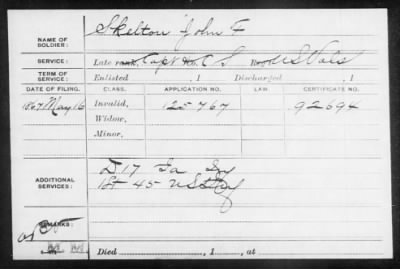 NAME OF SOLDIER: Skelton John F
SERVICE: Late rank, Capt Co. C S Reg't U S Vols
TERM OF SERVICE: Enlisted , 1 Discharged , 1
DATE OF FILING. CLASS. APPLICATION NO. LAW. CERTIFICATE NO.
1867 May 16 Invalid, 125767 92694
Widow,
Minor,
ADDITIONAL SERVICES: D 17 Ia Inf
1st 45 U S Inf
REMARKS:
Died , 1 , at